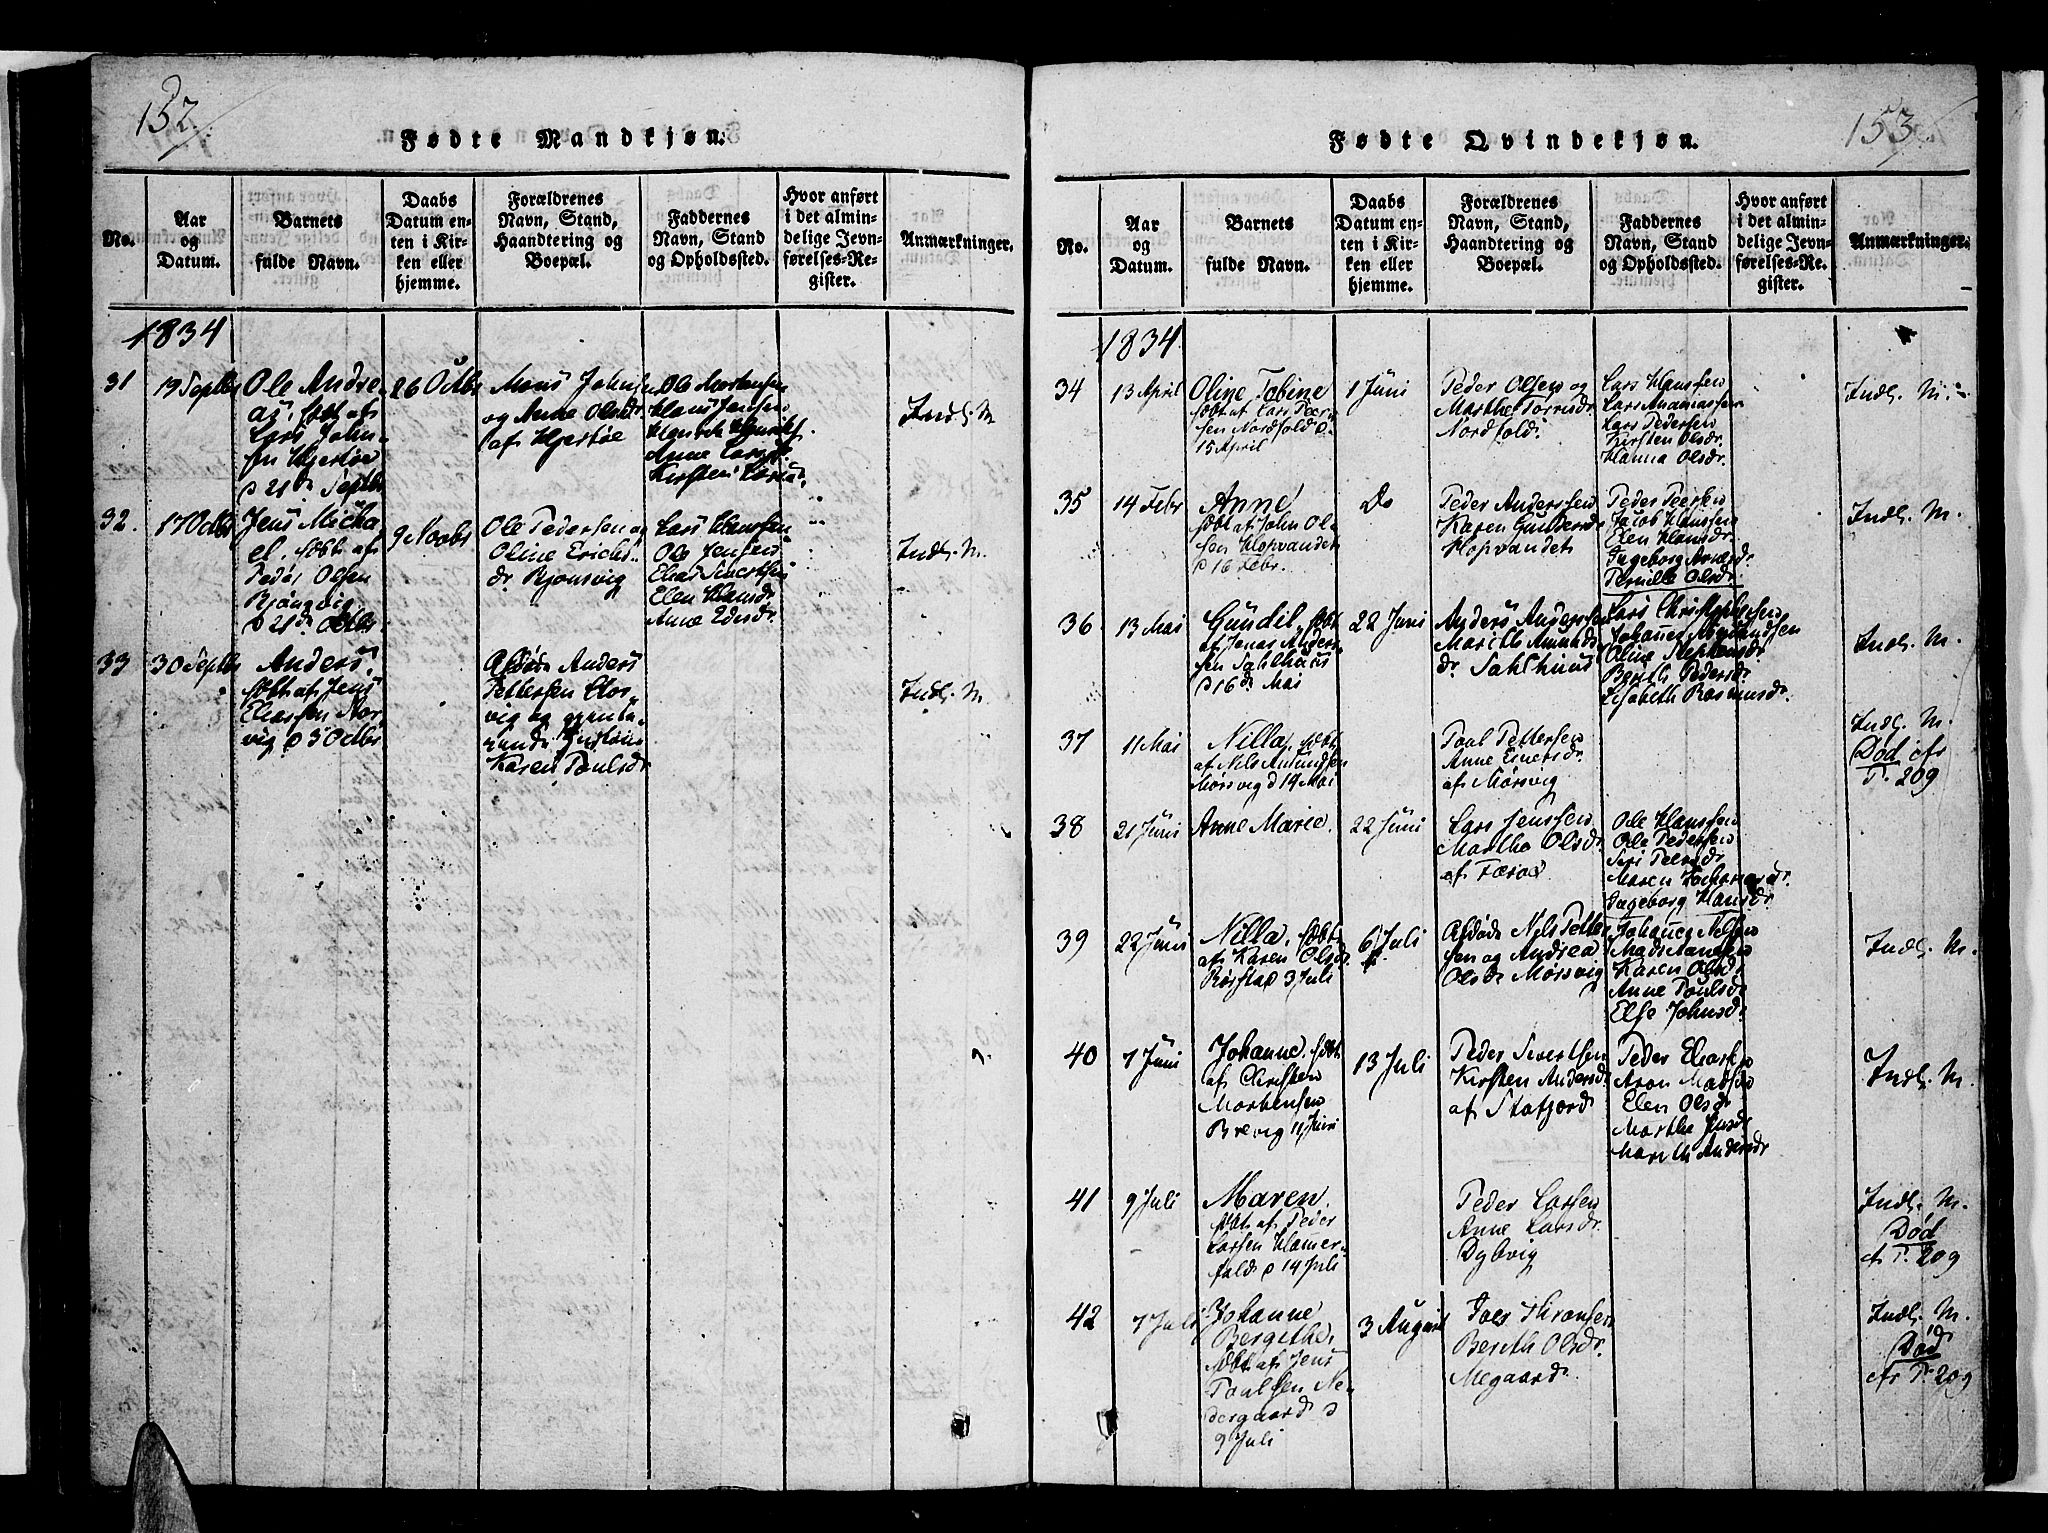 152.
Fødte Mandkjøn.
No.
Aar
og
Datum.
Barnets
fulde Navn.
Daabs
Datum en-
ten i Kir-
ken eller
hjemme.
Forældrenes
Navn, Stand,
Haandtering og
Boepæl.
Faddernes
Navn, Stand
og Opholdssted.
Hvor anført
i det almin-
delige Jevn-
førelses-Re-
gister.
Anmærkninger.
1834
31
19 Septbr
Ole Andre-
as, døbt af
Lars John-
sen Hjertøe
d 21de Septbr
26 Octbr
Mons Johnsen
og Anne Olsdr
af Hjertøe
Ole Mortensen
Hans Jensen
Anne Larsdr
Kirsten
Indl. M
32.
17 Octbr
Jens Micha-
el. døbt af
Peder Olsen
Bjonsvig
d 21de Octbr
9 Novbr
Ole Pedersen og
Oline Erichs-
dr Bjonsvig
Lars Hansen
Ole Jensen
Elias Sivertsen
Elen Hansdr
Anne
Indl. M.
33
30 Septbr
Anders,
døbt af Jens
Eliassen Nor-
vig d 5 Octbr
Afdøde Anders
Pettersen
vig og
Karen Poulsdr
Indl. M
153.
Fødte Qvindekjøn.
No.
Aar
og
Datum.
Barnets
fulde Navn.
Daabs
Datum en-
ten i Kir-
ken eller
hjemme.
Forældrenes
Navn, Stand,
Haandtering og
Boepæl.
Faddernes
Navn, Stand
og Opholdssted.
Hvor anført
i det almin-
delige Jevn-
førelses-Re-
gister.
Anmærkninger.
1834.
34
13 April
Oline Tobine
døbt af Lars Peer-
sen Nordfold d.
15 April
1 Juni
Peder Olsen og
Marthe Torrisdr
Nordfold.
Lars Hanssen
Lars Ananiassen
Lars Pedersen
Kirsten Olsdr.
Hanna Olsdr.
Indl. M.
35
14 Febr
Anne
døbt af John Ol-
sen Hopvandet
d 16 Febr.
Do
Peder Anderssen
Karen Gundersdr
Hopvandet
Peder Peersen
Jacob Hanssen
Elen Hansdr
Ingeborg
Pernille Olsdr.
Indl. M.
36
13 Mai
Gundil, døbt
af Jonas Anders-
sen Sahlhuus
d 16de Mai
22 Juni
Anders Anderssen
Marith Amunds
dr. Sahlhuus
Lars Christophersen
Johannes Amundsen
Oline Stephensdr.
Bereth Pedersdr.
Lisabeth Rasmusdr.
Indl. M.
37
11 Mai
Nilla, døbt
af Nils Amundsen
Mørsvig d 14 Mai
Poul Pettersen
Anne Einersdr.
af Mørsvig
Indl. M.
Død cfr
P. 209
38
21 Juni
Anne Marie.
22 Juni
Lars Jenssen
Marthe Olsdr.
af Færøe
Ole Hanssen
Ole Pedersen
Siri Peersdr
Maren
Ingeborg Hansdr.
39
22 Juni
Nilla, døbt
af Karen Olsdr.
Rørstad 3 Juli
6 Juli
Afdøde Nils Petter-
sen og Andrea
Olsdr Mørsvig
Johannes Nilsen
Mads
Karen Olsdr
Anne Poulsdr
Else Johnsdr.
Indl. M.
40
7 Juni
Johanne, døbt
af Christen
Mortensen
Brevig 11 Juni
13 Juli
Peder Sivertsen
Kirsten Andersdr
af Stofjord
Peder Eliassen
Aron Madsen
Elen Olsdr
Marthe Jensdr
Marith Andersdr
Indl. M.
41
9 Juli
Maren,
døbt af Peder
Larsen Hamer-
fald d 14 Juli
Peder Larsen
Anne Larsdr.
Dybvig
Indl. M.
Død
cf P. 209
42
7 Juli
Johanne
Bergithe,
døbt af Jens
Poulsen Ne-
dergaard d
9 Juli
3 August
Joer Thronsen
Bereth Olsdr.
Megaard
Indl. M.
Død
cfr P. 209